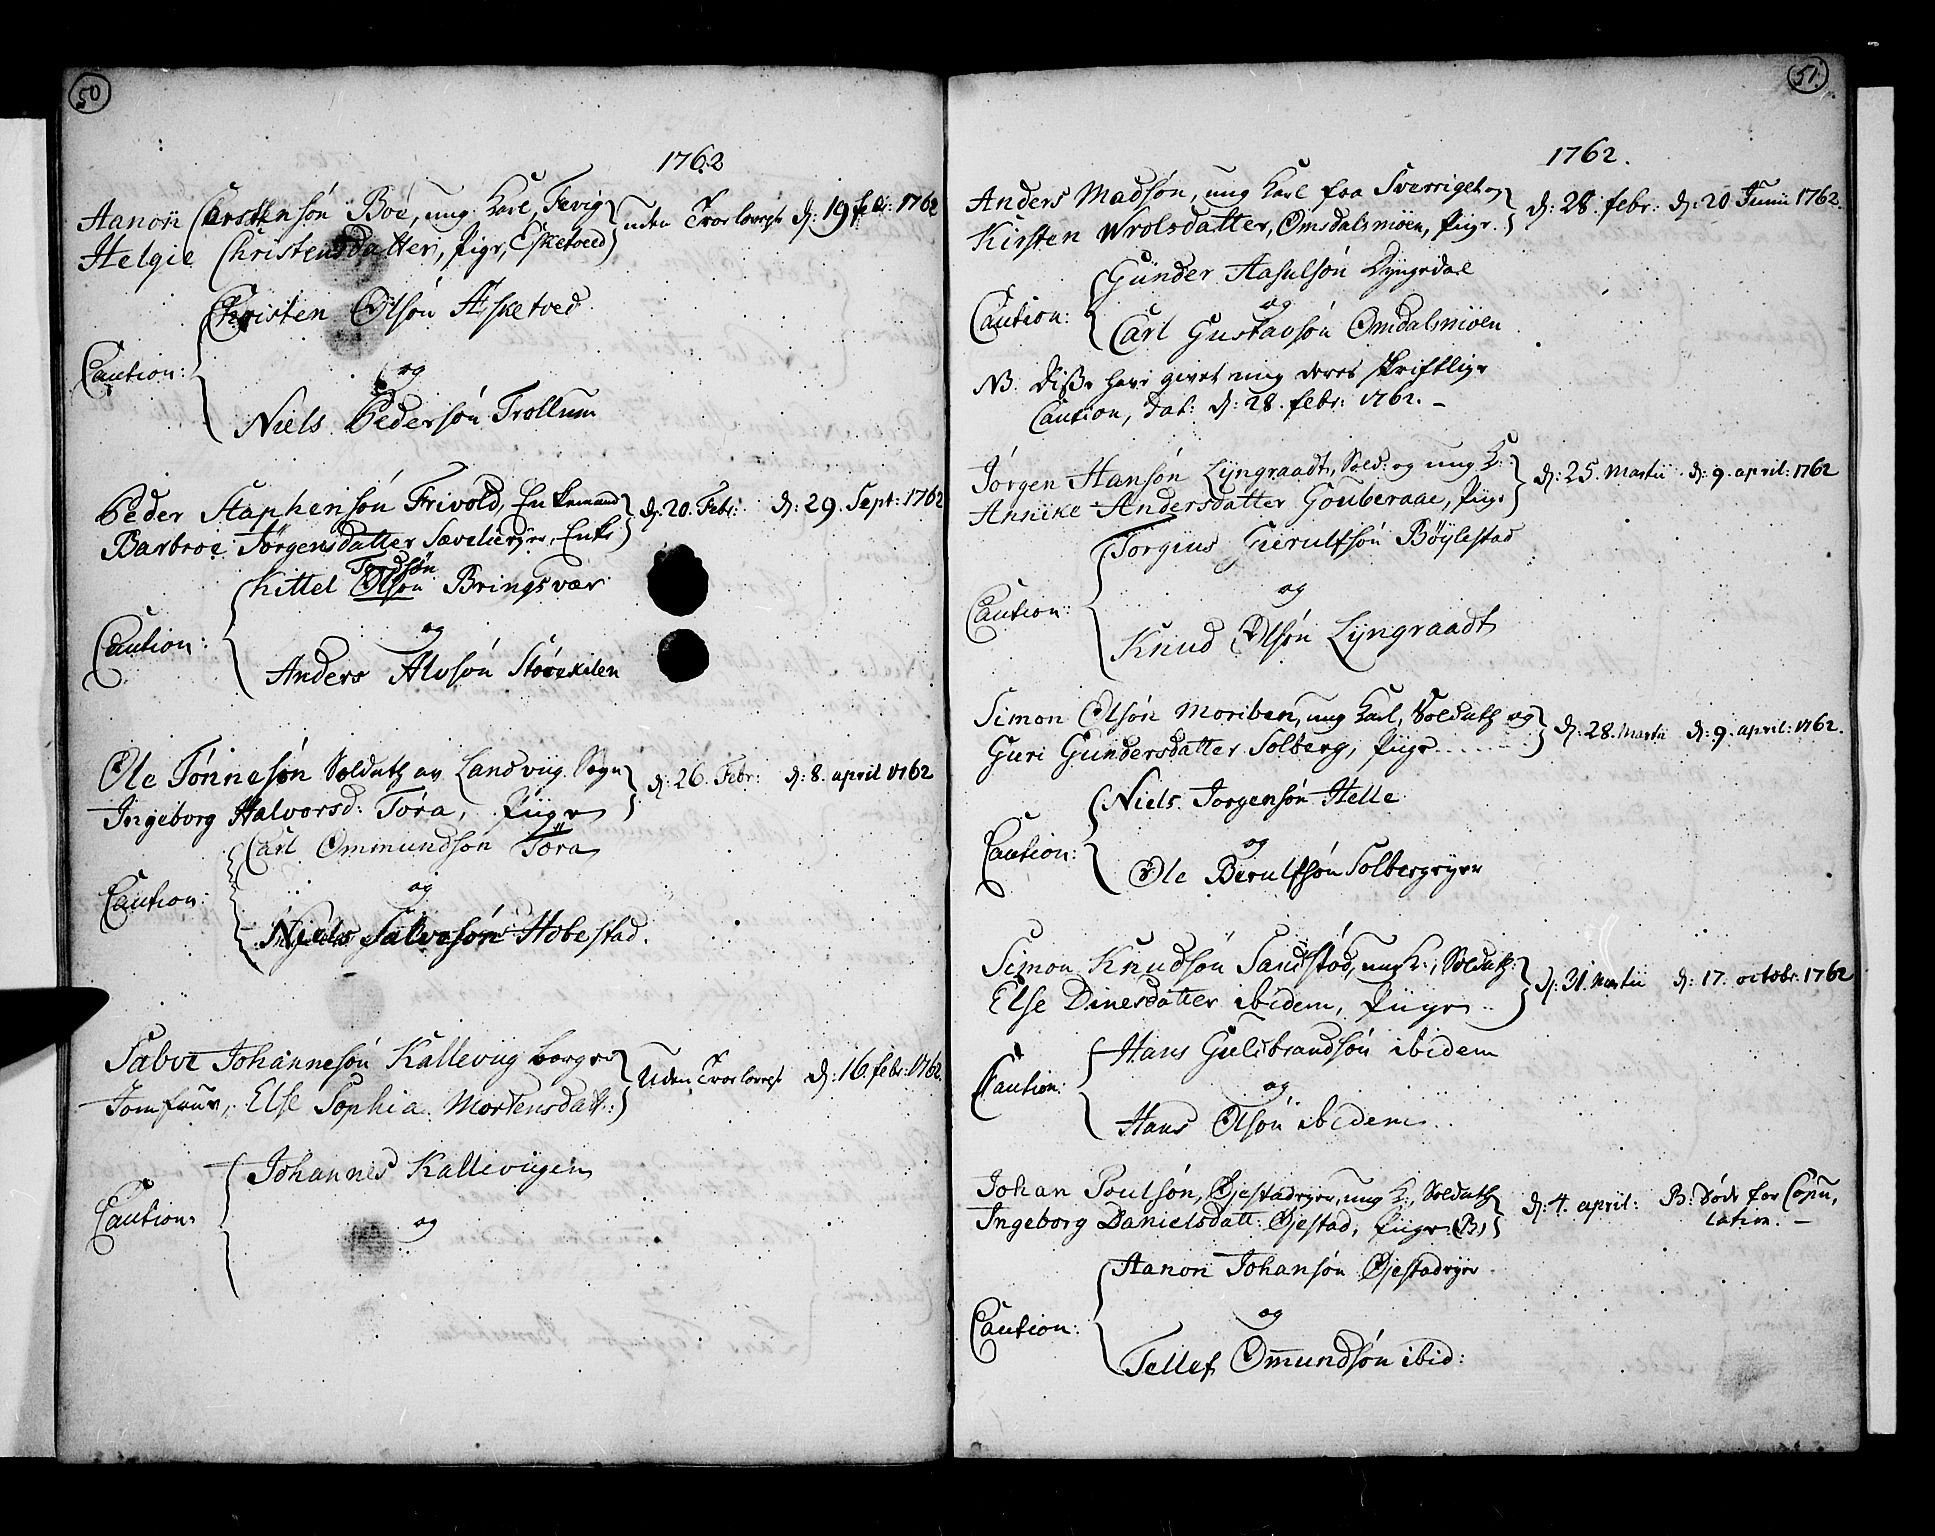 50
1762
Aanon Carstensøn Boe, ung Karl, Fevig
Helgie Christensdatter, Pige, Esketved
uden Trorlovelse d: 19 febr: 1762
Christen Olsøn Æsketved
Caution:
og
Niels Pedersøn Trollum
Peder Staphensøn Frivold, Enkemand
Barbroe Jørgensdatter Sæveliejer, Enke
d: 20. Febr: d: 29. Sept: 1762
Tordsøn
Kittel Olsøn Bringsvær
Caution:
og
Anders Alvsøn Størekilen
Ole Tønnesøn Soldath av Landviig Sogn
Ingeborg Halvorsd: Tøra, Piige
d: 26. Febr: d: 8. april 1762
Carl Ommundsøn Tøra
Caution:
og
Niels Salvesøn Hobestad.
Salve Johannesøn Kalleviig borger
Jomfrue, Else Sophia Mortensdatt:
Uden Trorlovelse d: 16. febr: 1762.
Johannes Kallevigen
Caution:
og
51.
1762.
Anders Madsøn, ung Karl fra Sverrige og
Kirsten Wrolsdatter, Omsdalsmoen, Pige.
d: 28. febr: d: 20 Junii 1762.
Gunder Aasulsøn Lyngedal
Caution:
og
Carl Gustavsøn Omdalsmoen
NB. disse have givet mig deres skriftlige
Caution, dat: d: 28. febr: 1762. –
Jørgen Hansøn Lyngraadt, Sold: og ung K:
Annike Andersdatter Gouberaae, Piige
d: 25 Martii d: 9. april: 1762
Torgius Gierulfsøn Bøylestad
Caution:
og
Knud Olsøn Lyngraadt
Simon Olsøn Moriben, ung Karl, Soldath og
Guri Gundersdatter Solberg, Piige
d: 28. Martii d: 9. april: 1762.
Niels Jørgensøn Helle
Caution:
og
Ole Berulfsøn Solbergejer
Simon Knudsøn Sandstød, ung K:, Soldath:
Else Dinesdatter ibidem, Piige
d: 31. Martii d: 17. octobr: 1762
Hans Gulsbrandsøn ibidem
Caution:
og
Hans Olsøn ibidem
Johan Poulsøn, Øjestadejer, ung K:, Soldath
Ingeborg Danielsdatt: Øjestad, Piige (B)
d: 4. april: B: døde for Copu,
lation. –
Aanon Johansøn Øjestadejer
Caution:
og
Tellef Ommundsøn ibid: